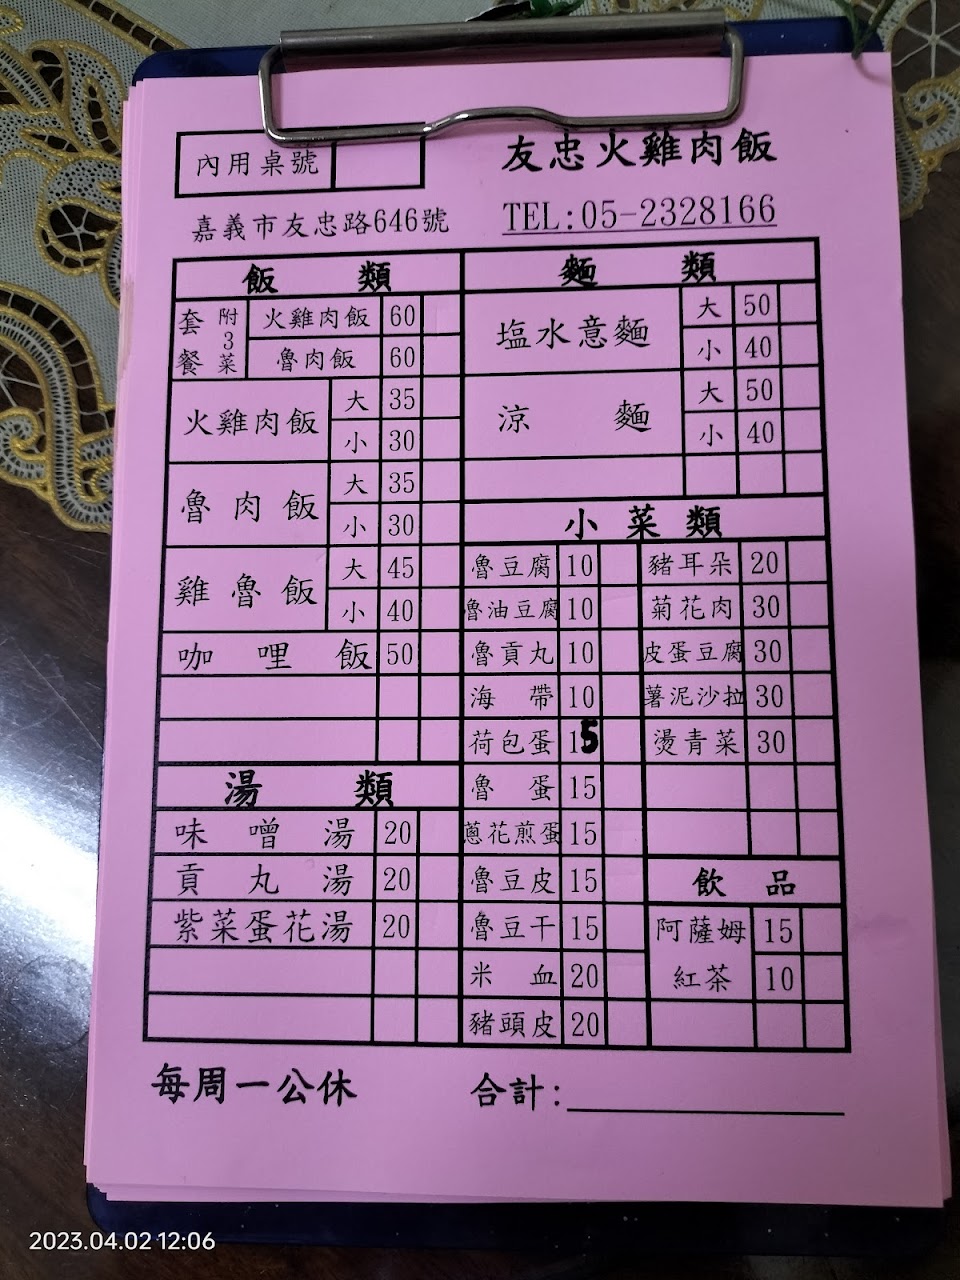 內用桌號
友忠火雞肉飯
嘉義市友忠路646號
TEL:05-2328166
飯 類
套餐 附3菜 火雞肉飯 60
魯肉飯 60
火雞肉飯 大 35
小 30
魯肉飯 大 35
小 30
雞魯飯 大 45
小 40
咖哩飯 50
湯 類
味噌湯 20
貢丸湯 20
紫菜蛋花湯 20
麵 類
塩水意麵 大 50
小 40
涼麵 大 50
小 40
小菜類
魯豆腐 10
魯油豆腐 10
魯貢丸 10
海帶 10
荷包蛋 15
魯蛋 15
蔥花煎蛋 15
魯豆皮 15
魯豆干 15
米血 20
豬頭皮 20
豬耳朵 20
菊花肉 30
皮蛋豆腐 30
薯泥沙拉 30
燙青菜 30
飲品
阿薩姆 15
紅茶 10
每周一公休
合計:
2023.04.02 12:06